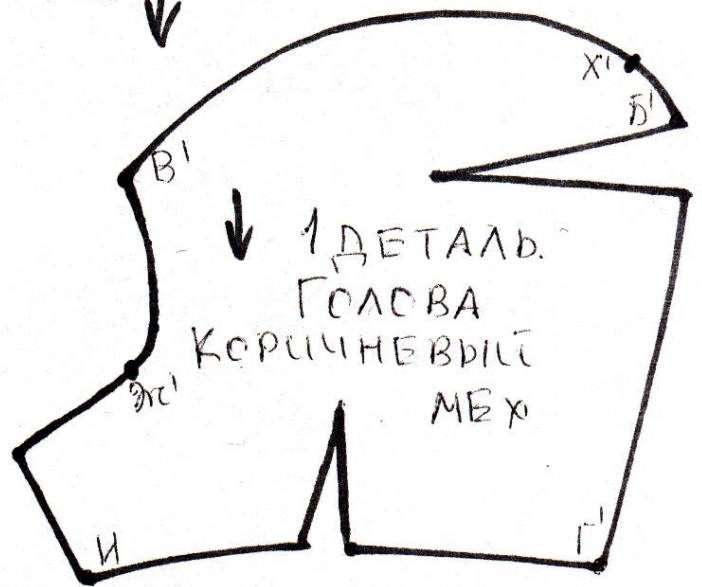 Х'
Б'
В'
1 ДЕТАЛЬ.
ГОЛОВА
КОРИЧНЕВЫЙ
МЕХ
Ж'
И
Г'